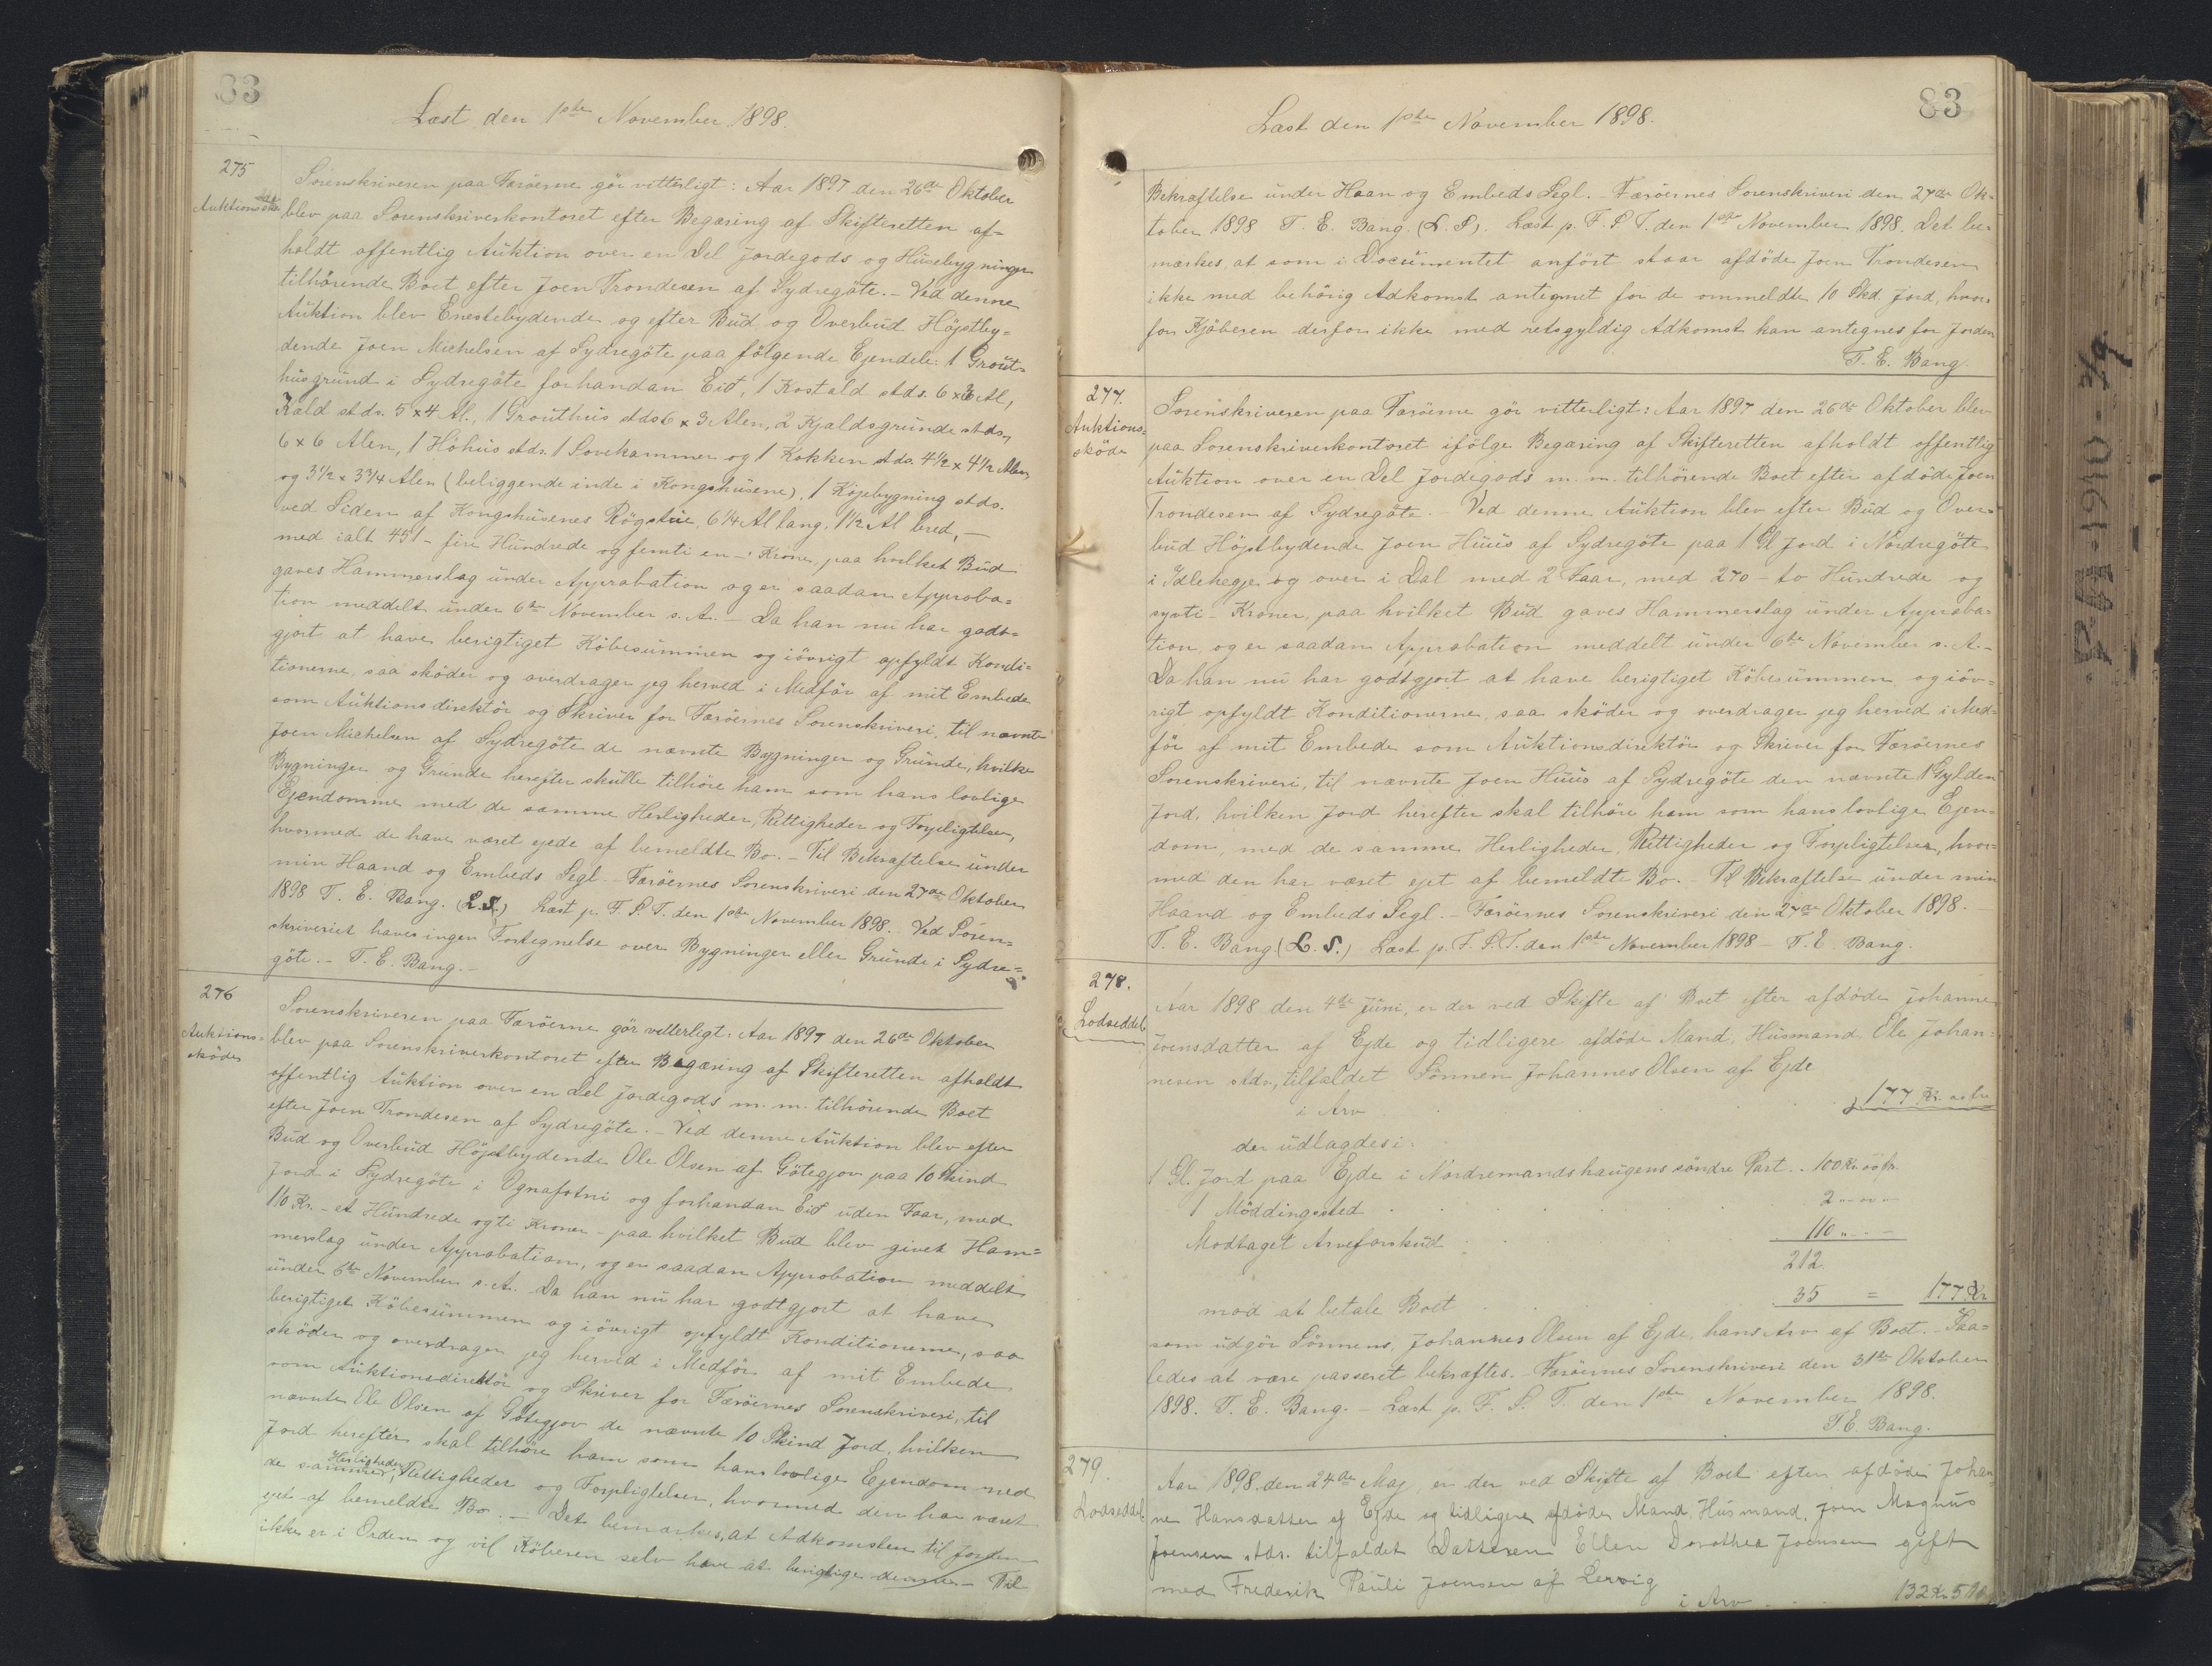 83
Læst den 1ste November 1898.
275
Auktionsskøde
Sorenskriveren paa Færöerne gör vitterligt: Aar 1897 den 26de Oktober
blev paa Sorenskriverkontoret efter Begæring af Skifteretten af=
holdt offentlig Auktion over en Del Jordegods og Husebygninger
tilhörende Boet efter Joen Trondesen af Sydregöte. – Ved denne
Auktion blev Enestebydende og efter Bud og Overbud Höjstby=
dende Joen Michelsen af Sydregöte paa fölgende Ejendele: 1 Grout=
husgrund i Sydregöte forhandan Eid, 1 Kostald stds. 6 x 3 Al,
Kald stds. 5 x 4 Al., 1 Grouthus stds 6 x 3 Alen, 2 Kjældsgrunde stds.,
6 x 6 Alen, 1 Höhus stds. 1 Sovekammer og 1 Kokken stds. 4½ x 4½ Alen
og 3½ x 3¾ Alen (beliggende inde i Kongshusene), 1 Köjebygning stds.
ved Siden af Kongshusenes Rögstue, 6¼ Al lang, 1½ Al bred, –
med ialt 451 – fire Hundrede og femti en – Krone, paa hvilket Bud
gaves Hammerslag under Approbation og er saadan Approba=
tion meddelt under 6te November s. A. – Da han nu har godt=
gjort at have berigtiget Köbesummen og iövrigt opfyldt Kondi=
tionerne, saa sköder og overdrager jeg herved i Medför af mit Embede
som Auktionsdirektör og Skriver for Færöernes Sorenskriveri, til nævnte
Joen Michelsen af Sydregöte de nævnte Bygninger og Grunde, hvilke
Bygninger og Grunde herefter skulle tilhöre ham som hans lovlige
Ejendomme med de samme Herligheder, Rettigheder og Forpligtelser,
hvormed de have været ejede af bemeldte Bo. – Til Bekræftelse under
min Haand og Embeds Segl. – Færöernes Sorenskriveri den 27de Oktober
1898 T. E. Bang. (L.S.) Læst p. F. S. T. den 1ste November 1898. – Ved Soren=
skriveriet haves ingen Fortegnelse over Bygninger eller Grunde i Sydre=
göte. – T. E. Bang. –
276
Auktions=
sköde
Sorenskriveren paa Færöerne gör vitterligt: Aar 1897 den 26de Oktober
blev paa Sorenskriverkontoret efter Begæring af Skifteretten afholdt
offentlig Auktion over en Del Jordegods m. m. tilhörende Boet
efter Joen Trondesen af Sydregöte. – Ved denne Auktion blev efter
Bud og Overbud Höjstbydende Ole Olsen af Götegjov paa 10 Skind
Jord i Sydregöte i Ognafotni og forhandan Eid uden Faar, med
110 Kr. – et Hundrede og ti Kroner – paa hvilket Bud blev givet Ham=
merslag under Approbation, og er saadan Approbation meddelt
under 6te November s. A. Da han nu har godtgjort at have
berigtiget Köbesummen og iövrigt opfyldt Konditionerne, saa
sköder og overdrager jeg herved i Medför af mit Embede
som Auktionsdirektör og Skriver for Færöernes Sorenskriveri, til
nævnte Ole Olsen af Götegjov de nævnte 10 Skind Jord, hvilken
Jord herefter skal tilhöre ham som hans lovlige Ejendom med
de samme Herligheder, Rettigheder og Forpligtelser, hvormed den har været
ejet af bemeldte Bo. – Det bemærkes, at Adkomsten til Jorden
ikke er i Orden og vil Köberen selv have at berigtige denne. – Til
83
Læst den 1ste November 1898.
Bekræftelse under Haan og Embeds Segl. – Færöernes Sorenskriveri den 27de Ok=
tober 1898 T. E. Bang. (L. S). Læst p. F. S. T. den 1ste November 1898. Det be=
mærkes, at som i Documentet anfört staar afdöde Joen Trondesen
ikke med behörig Adkomst antegnet for de ommeldte 10 Skd. Jord, hvor=
for Kjöberen derfor ikke med retsgyldig Adkomst kan antegnes for Jorden
T. E. Bang.
277.
Auktions=
sköde
Sorenskriveren paa Færöerne gör vitterligt: Aar 1897 den 26de Oktober blev
paa Sorenskriverkontoret ifölge Begæring af Skifteretten afholdt offentlig
Auktion over en Del Jordegods m. m. tilhörende Boet efter afdöde Joen
Trondesen af Sydregöte. – Ved denne Auktion blev efter Bud og Over=
bud Höjstbydende Joen Huus af Sydregöte paa 1 Gl Jord i Nordregöte
i Idlehegje og over i Dal med 2 Faar, med 270 – to Hundrede og
sytti – Kroner, paa hvilket Bud gaves Hammerslag under Approba=
tion, og er saadan Approbation meddelt under 6te November s. A. –
Da han nu har godtgjort at have berigtiget Köbesummen og iöv=
rigt opfyldt Konditionerne, saa sköder og overdrager jeg herved i Med=
för af mit Embede som Auktionsdirektör og Skriver for Færöernes
Sorenskriveri, til nævnte Joen Huus af Sydregöte den nævnte 1 Gylden
Jord, hvilken Jord herefter skal tilhöre ham som hans lovlige Ejen=
dom, med de samme Herligheder, Rettigheder og Forpligtelser, hvor=
med den har været ejet af bemeldte Bo. – Til Bekræftelse under min
Haand og Embeds Segl. – Færöernes Sorenskriveri den 27de Oktober 1898. –
T. E. Bang (L. S.) Læst p. F. S. T. den 1ste November 1898 – T. E. Bang.
278.
Lodseddel
Aar 1898 den 4de Juni, er der ved Skifte af Boet efter afdöde Johanne
Joensdatter af Ejde og tidligere afdöde Mand, Husmand, Ole Johan=
nesen stds., tilfaldet Sönnen Johannes Olsen af Ejde
i Arv 177 Kr.
der udlagdes i:
1 Gl. Jord paa Ejde i Nordremandshaugens söndre Part . . 100 Kr.
1 Möddingssted 2
Modtaget Arveforskud 110
212.
mod at betale Boet 35 = 177 Kr
som udgör Sönnens, Johannes Olsen af Ejde, hans Arv af Boet. – Saa=
ledes at være passeret bekræftes. – Færöernes Sorenskriveri den 31te Oktober
1898. T. E. Bang. – Læst p. F. S. T. den 1ste November 1898.
T. E. Bang.
279.
Lodseddel
Aar 1898 den 24de Maj, er der ved Skifte af Boet efter afdöde Johan=
ne Hansdatter af Ejde og tidligere afdöde Mand, Husmand, Joen Magnus
Joensen stds. tilfaldet Datteren Ellen Dorothea Joensen gift
med Frederik Pauli Joensen af Lervig
i Arv 132 Kr